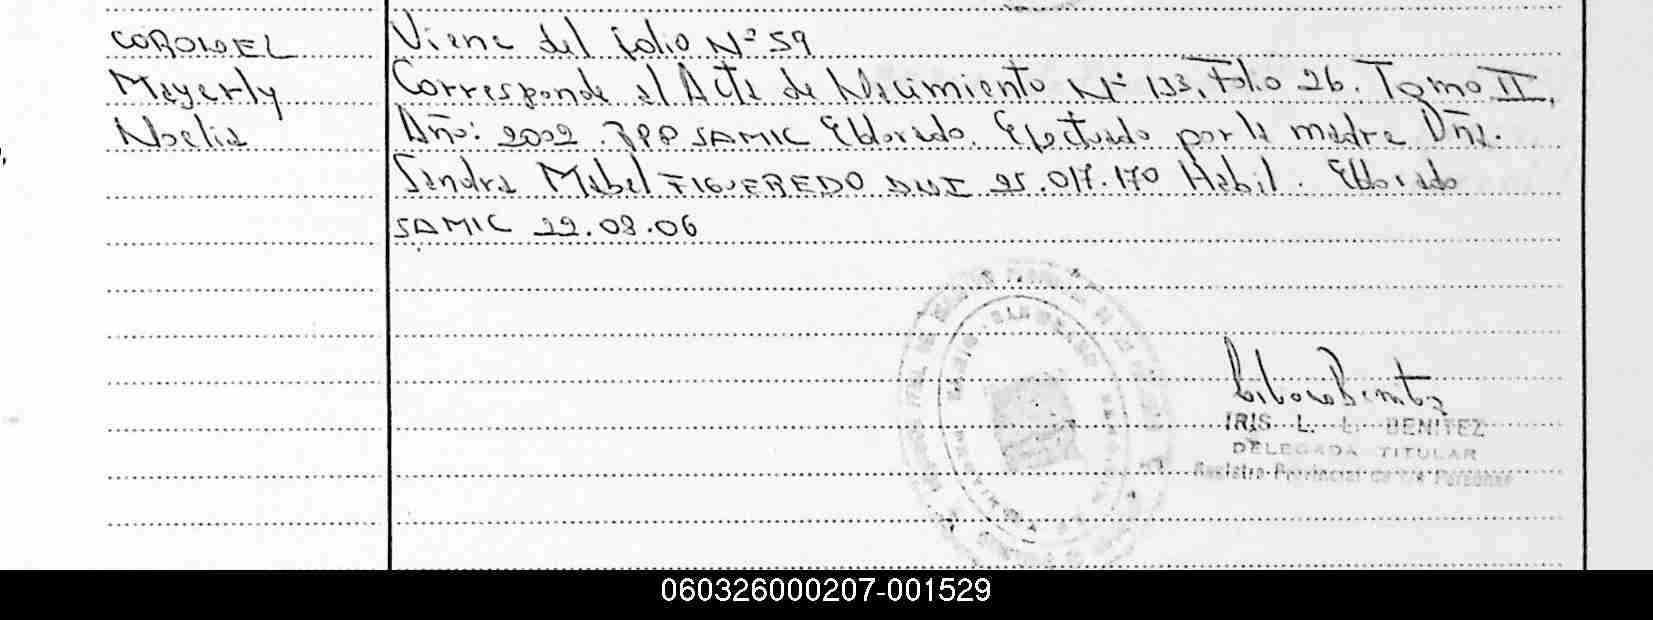 CORONEL
Mayerly
Noelia
Viene del folio Nº 59
Corresponde al Acta de Nacimiento Nº 133, Folio 26. Tomo II,
Año: 2002. RPP SAMIC Eldorado. Efectuado por la madre Dña.
Sandra Mabel FIGUEREDO DNI 95.017.170 Habil. Eldorado
SAMIC 22.08.06
IRIS L. L. BENITEZ
DELEGADA TITULAR
Registro Provincial de las Personas
060326000207-001529